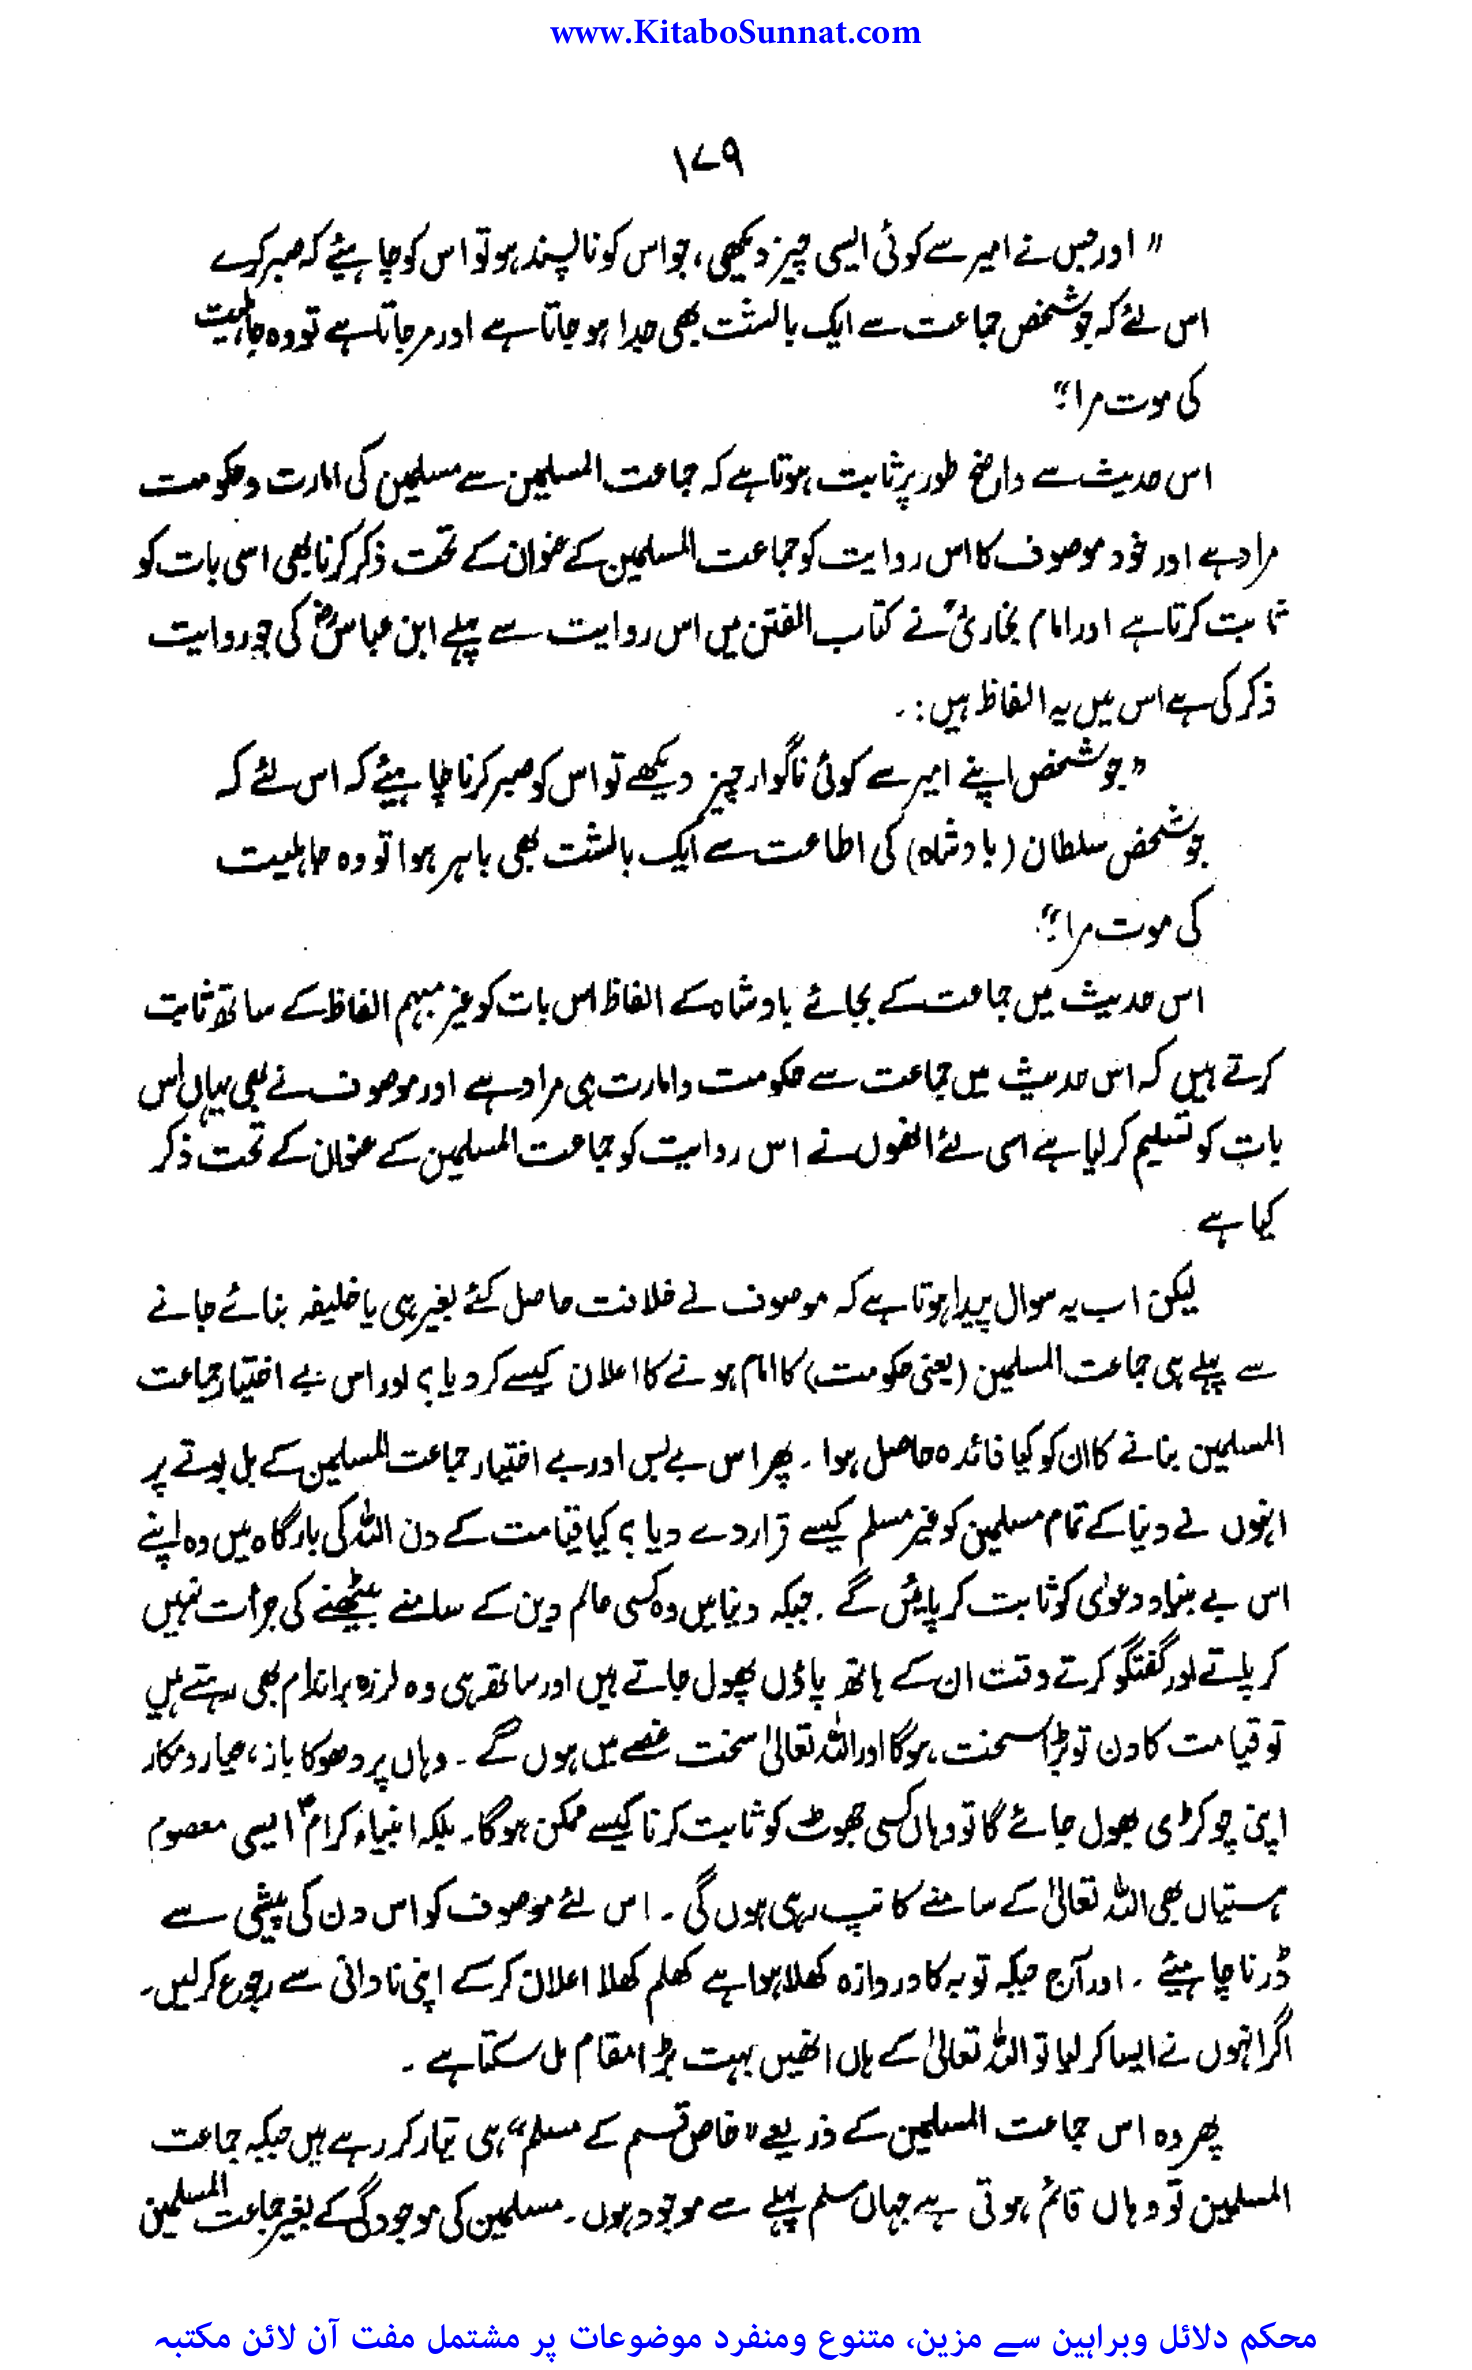 www.KitaboSunnat.com
۱۷۹
" اور جس نے امیر سے کوئی ایسی چیز دیکھی، جو اس کو ناپسند ہو تو اس کو چاہیئے کہ صبر کرے
اس لئے کہ جو شخص جماعت سے ایک بالشت بھی جدا ہو جاتا ہے اور مر جاتا ہے تو وہ جاہلیت
کی موت مرا "
اس حدیث سے واضح طور پر ثابت ہوتا ہے کہ جماعت المسلمین سے مسلمین کی امارت و حکومت
مراد ہے اور خود موصوف کا اس روایت کو جماعت المسلمین کے عنوان کے تحت ذکر کرنا بھی اسی بات کو
ثابت کرتا ہے اور امام بخاریؒ نے کتاب الفتن میں اس روایت سے پہلے ابن عباسؓ کی جو روایت
ذکر کی ہے اس میں یہ الفاظ ہیں :۔
" جو شخص اپنے امیر سے کوئی ناگوار چیز دیکھے تو اس کو صبر کرنا چاہیئے کہ اس لئے کہ
جو شخص سلطان (بادشاہ) کی اطاعت سے ایک بالشت بھی باہر ہوا تو وہ جاہلیت
کی موت مرا "
اس حدیث میں جماعت کے بجائے بادشاہ کے الفاظ اس بات کو غیر مبہم الفاظ کے ساتھ ثابت
کرتے ہیں کہ اس حدیث میں جماعت سے حکومت و امارت ہی مراد ہے اور موصوف نے بھی یہاں اس
بات کو تسلیم کر لیا ہے اسی لئے انھوں نے اس روایت کو جماعت المسلمین کے عنوان کے تحت ذکر
کیا ہے
لیکن اب یہ سوال پیدا ہوتا ہے کہ موصوف نے خلافت حاصل کئے بغیر ہی یا خلیفہ بنائے جانے
سے پہلے ہی جماعت المسلمین (یعنی حکومت) کا امام ہونے کا اعلان کیسے کر دیا ؟ اور اس بے اختیار جماعت
المسلمین بنانے کا ان کو کیا فائدہ حاصل ہوا ۔ پھر اس بے بس اور بے اختیار جماعت المسلمین کے بل بوتے پر
انہوں نے دنیا کے تمام مسلمین کو غیر مسلم کیسے قرار دے دیا ؟ کیا قیامت کے دن اللہ کی بارگاہ میں وہ اپنے
اس بے بنیاد دعوٰی کو ثابت کر پائیں گے . جبکہ دنیا میں وہ کسی عالم دین کے سامنے بیٹھنے کی جرأت نہیں
کر پاتے اور گفتگو کرتے وقت ان کے ہاتھ پاؤں پھول جاتے ہیں اور ساتھ ہی وہ لرزہ براندام بھی رہتے ہیں
تو قیامت کا دن تو بڑا سخت ہوگا اور اللہ تعالیٰ سخت غصے میں ہوں گے ۔ وہاں پر دھوکا باز، عیار و مکار
اپنی چوکڑی بھول جائے گا تو وہاں کسی جھوٹ کو ثابت کرنا کیسے ممکن ہوگا۔ بلکہ انبیاء کرامؑ ایسی معصوم
ہستیاں بھی اللہ تعالیٰ کے سامنے کانپ رہی ہوں گی ۔ اس لئے موصوف کو اس دن کی پیشی سے
ڈرنا چاہیئے ۔ اور آج جبکہ توبہ کا دروازہ کھلا ہوا ہے کھلم کھلا اعلان کر کے اپنی نادانی سے رجوع کر لیں۔
اگر انہوں نے ایسا کر لیا تو اللہ تعالیٰ کے ہاں انھیں بہت بڑا مقام مل سکتا ہے ۔
پھر وہ اس جماعت المسلمین کے ذریعے " خاص قسم کے مسلم " ہی تیار کر رہے ہیں جبکہ جماعت
المسلمین تو وہاں قائم ہوتی ہے جہاں مسلم پہلے سے موجود ہوں۔ مسلمین کی موجودگی کے بغیر جماعت المسلمین
محکم دلائل وبراہین سے مزین، متنوع ومنفرد موضوعات پر مشتمل مفت آن لائن مکتبہ